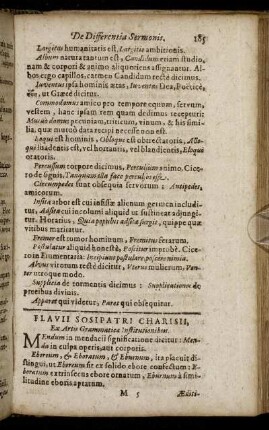 De Differentia Sermonis. 185
Largitas humanitatis est, Largitio ambitionis.
Album natura tantum est, Candidum etiam studio,
nam & corpori & animo aliquoties assignatur. Al-
bos ergo capillos, carmen Candidum recte dicimus.
Iuventus ipsa hominis ætas, Iuventas Dea, Poëtice,
ut Græce dicitur.
Commodamus amico pro tempore equum, servum,
vestem, hanc ipsam rem quam dedimus recepturi:
Mutuò damus pecuniam, triticum, vinum, & his simi-
lia, quæ mutari recidendo necesse non est.
Loqui est hominis, Obloqui est obtrectatoris, Allo-
qui suadentis est, vel hortantis, vel blandientis, Eloqui
oratoris.
Percussum corpore dicimus, Perculsum animo. Cice-
ro de signis, Tanquam ista face perculsos esse.
Circumpedes sunt obsequia servorum; Antipedes,
amicorum.
Insita arbor est cui inscissæ alienum germen includi-
tur, Adsita cui incolumi aliquid ut sustineat adjungi-
tur. Horatius, Quia populus adsita surgit, quippe quæ
vitibus maritatur.
Fremor est rumor hominum, Fremitus ferarum.
Postulatur aliquid honestè, Poscitur improbè. Cice-
ro in Frumentaria: Incipiunt postulare, poscere, minari.
Alvus virorum recte dicitur, Vterus mulierum, Ven-
ter utroque modo.
Supplicia de tormentis dicimus: Supplicationes de
precibus divinis.
Apparet qui videtur, Paret qui obsequitur.
FLAVII SOSIPATRI CHARISII,
Ex Artis Grammaticæ Institutionibus.
Mendum in mendacii significatione dicitur: Men-
da in culpa operis, aut corporis.
Eboreum, & Eboratum, & Eburnum, ita placuit di-
stingui, ut Eboreum sit ex solido ebore confectum: E-
boratum extrinsecus ebore ornatum, Eburnum à simi-
litudine eboris aptatum.
M 5 Æsti-